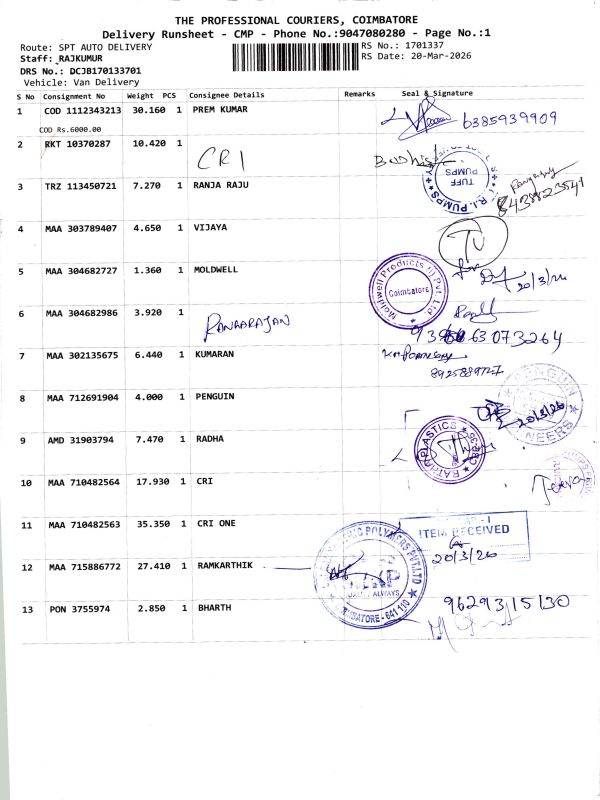 THE PROFESSIONAL COURIERS, COIMBATORE
Delivery Runsheet - CMP - Phone No.:9047080280 - Page No.:1
Route: SPT AUTO DELIVERY
RS No.: 1701337
Staff: RAJKUMUR
RS Date: 20-Mar-2026
DRS No.: DCJB170133701
Vehicle: Van Delivery
S No Consignment No Weight PCS Consignee Details Remarks Seal & Signature
1 COD 1112343213 30.160 1 PREM KUMAR 6385939909
COD Rs.6000.00
2 RKT 10370287 10.420 1 CRI
TUFF PUMPS
3 TRZ 113450721 7.270 1 RANJA RAJU 8438823541
4 MAA 303789407 4.650 1 VIJAYA
5 MAA 304682727 1.360 1 MOLDWELL Moldwell Products Pvt. Ltd. Coimbatore 20/3/26
6 MAA 304682986 3.920 1 RANGARAJAN
63073264
7 MAA 302135675 6.440 1 KUMARAN
8925889727
8 MAA 712691904 4.000 1 PENGUIN 20/3/26
9 AMD 31903794 7.470 1 RADHA PLASTICS
10 MAA 710482564 17.930 1 CRI
11 MAA 710482563 35.350 1 CRI ONE ITEM RECEIVED
20/3/26
12 MAA 715886772 27.410 1 RAMKARTHIK POLYMERS PVT.LTD ALWAYS
13 PON 3755974 2.850 1 BHARTH 9629315130